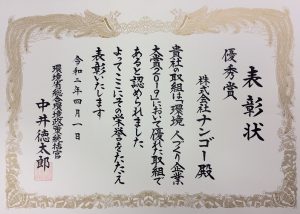 表彰状
優秀賞
株式会社ナンゴー殿
貴社の取組は「環境 人づくり企業
大賞2019」において優れた取組で
あると認められました
よってここにその栄誉をたたえ
表彰いたします
令和二年四月一日
環境省総合環境政策統括官
中井徳太郎